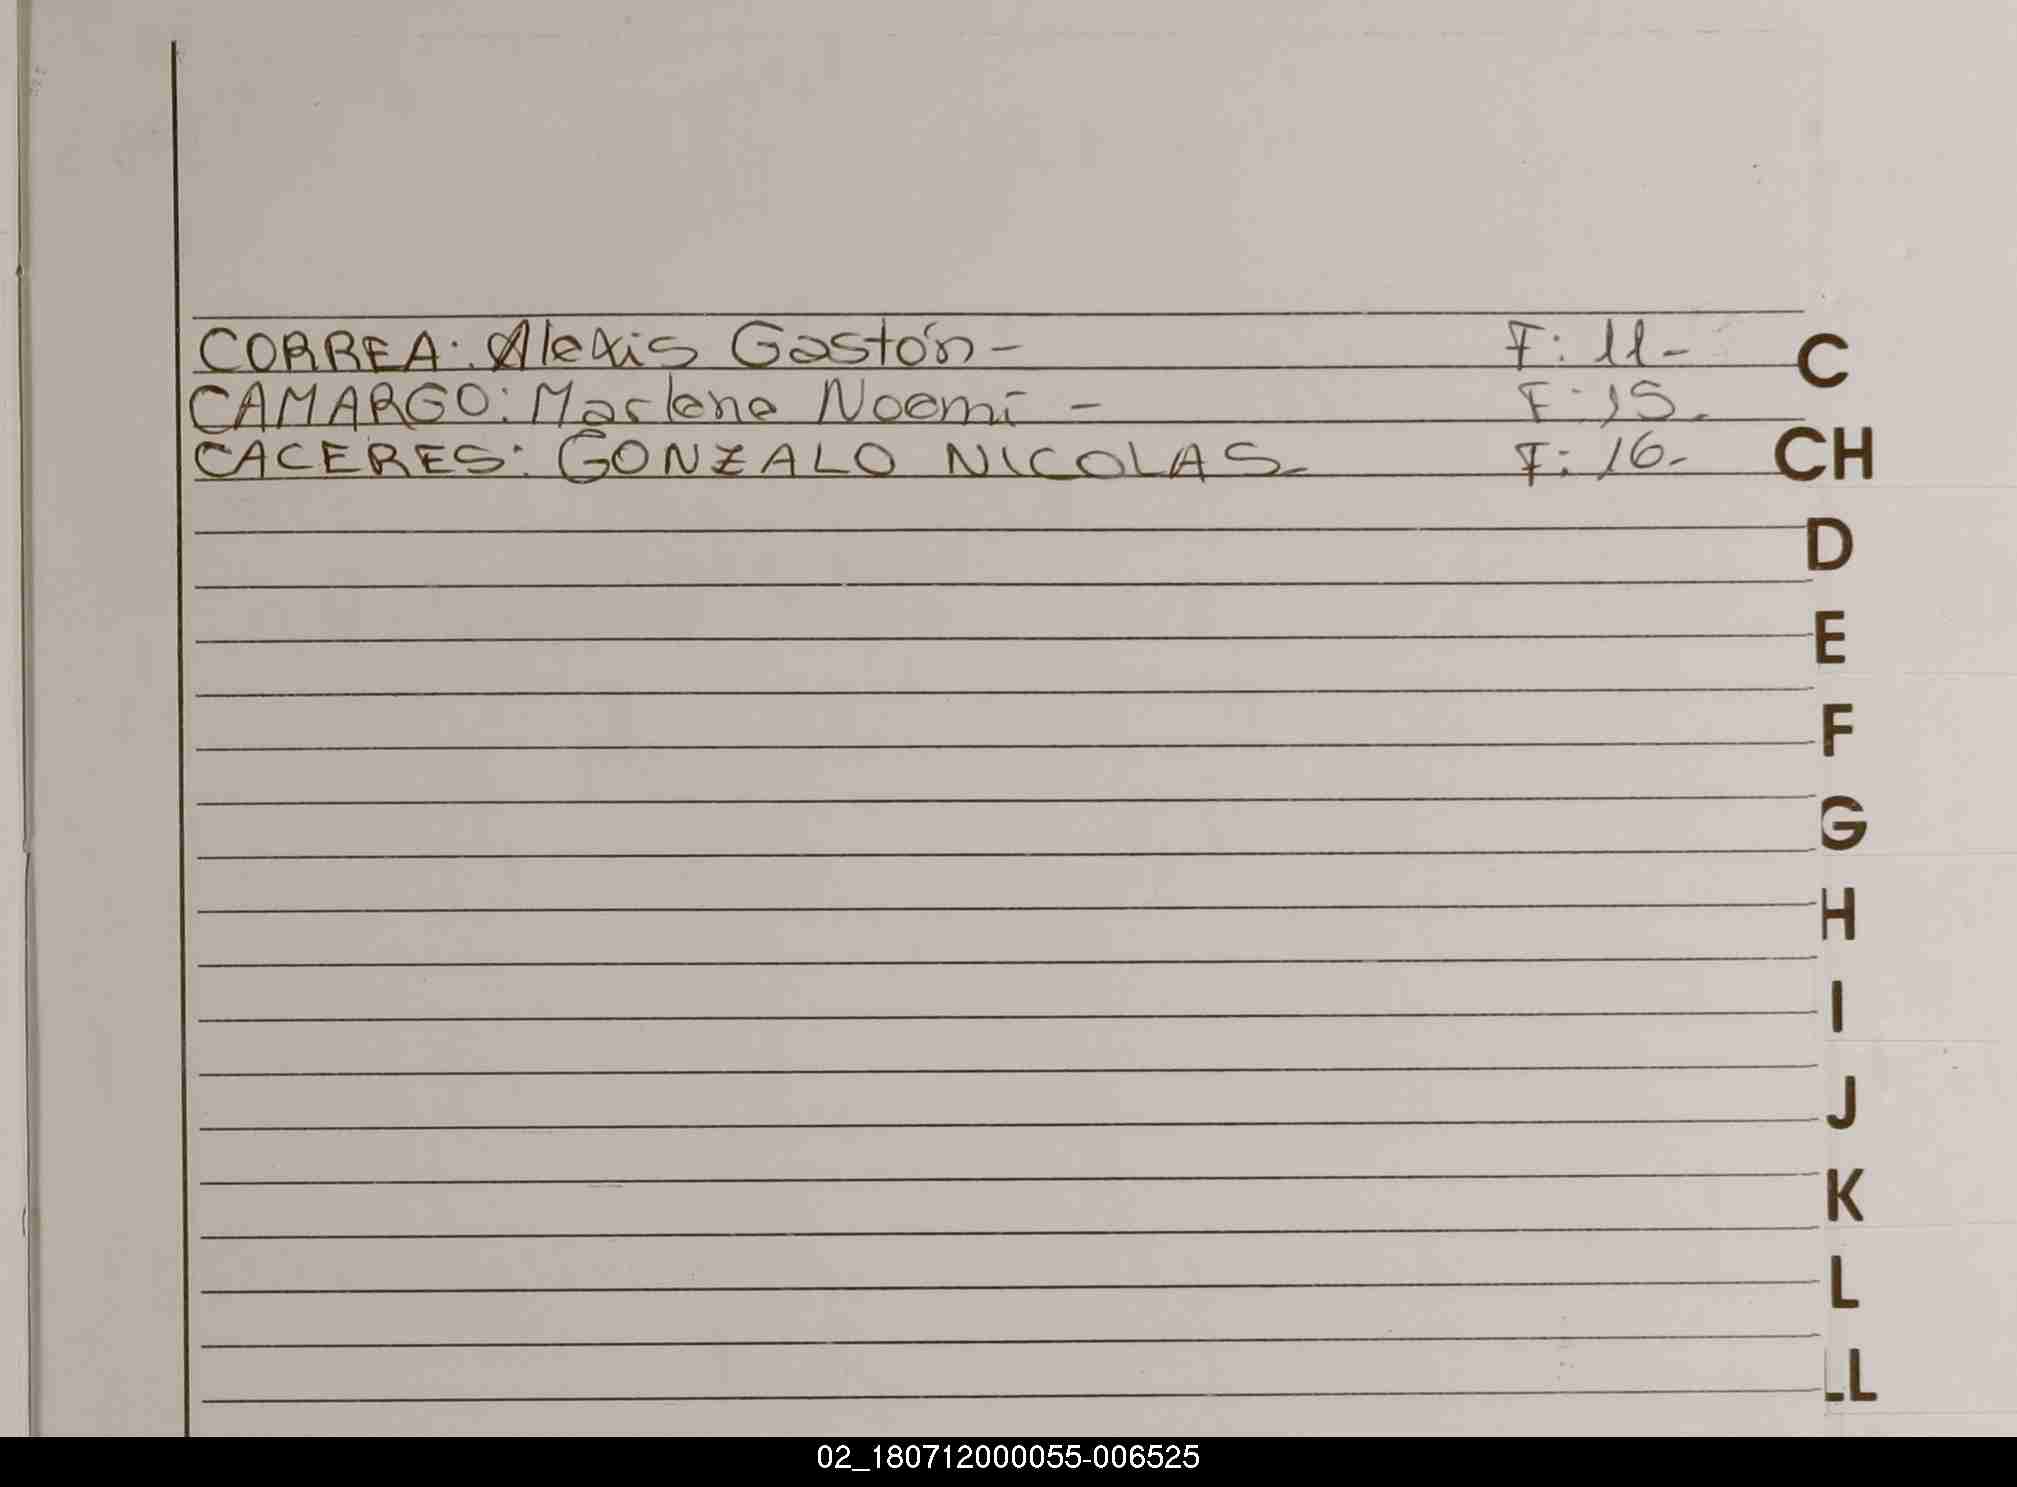 CORREA: Alexis Gastón - F: 11 -
C
CAMARGO: Marlene Noemi - F: 15.
CACERES: GONZALO NICOLAS. F: 16.
CH
D
E
F
G
H
I
J
K
L
LL
02_180712000055-006525